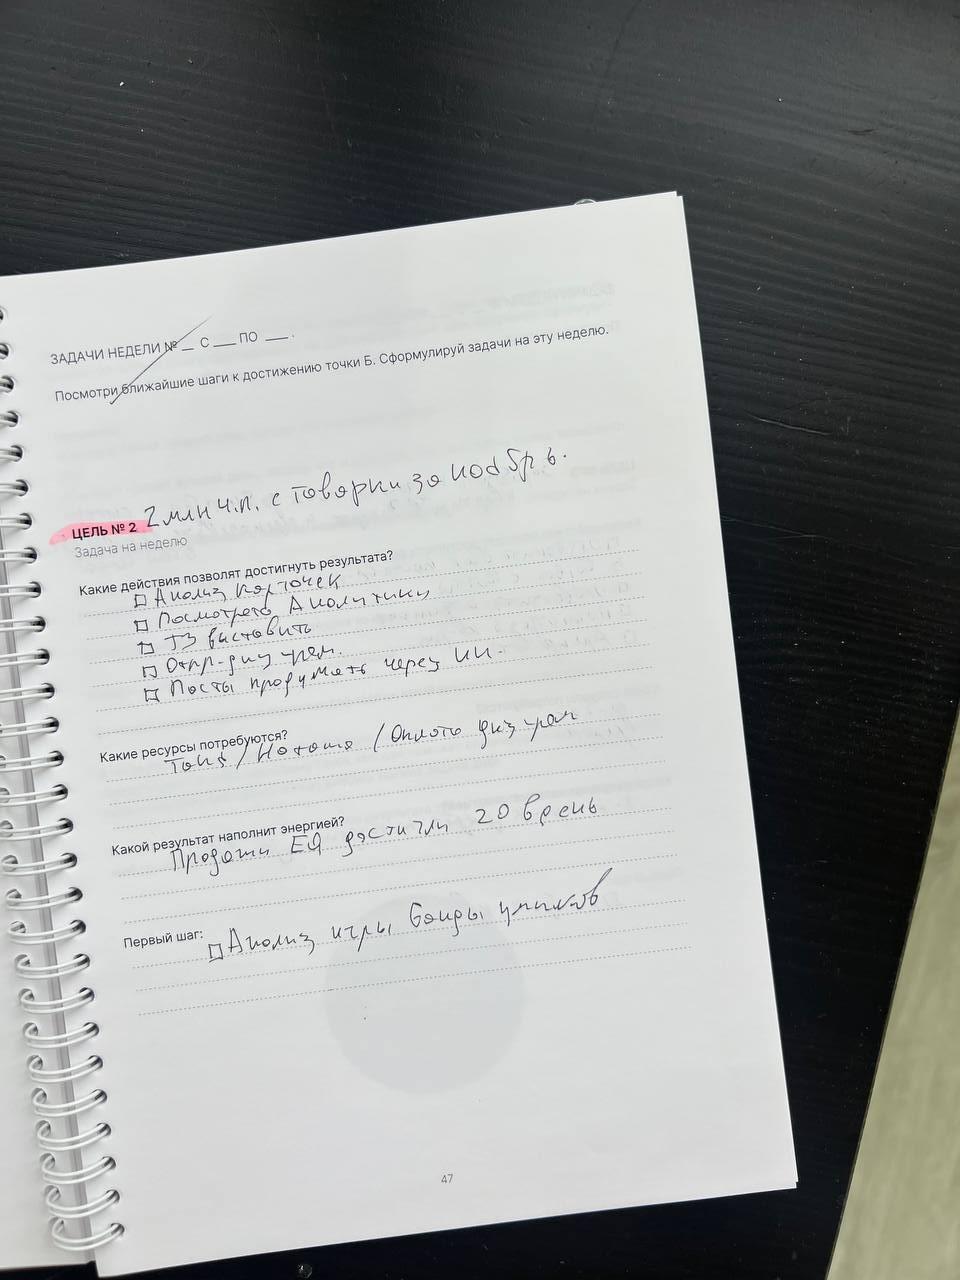 ЗАДАЧИ НЕДЕЛИ № __ С ___ ПО ___ .
Посмотри ближайшие шаги к достижению точки Б. Сформулируй задачи на эту неделю.
ЦЕЛЬ № 2 2 млн ч.п. с товарки за ноябрь.
Задача на неделю
Какие действия позволят достигнуть результата?
Анализ карточек
Посмотреть Аналитику
ТЗ выставить
Отпр. диз
Посты продумать через ИИ.
Какие ресурсы потребуются?
/ / Оплата диз
Какой результат наполнит энергией?
Продажи достигли 20 в день
Первый шаг:
Анализ игры
47